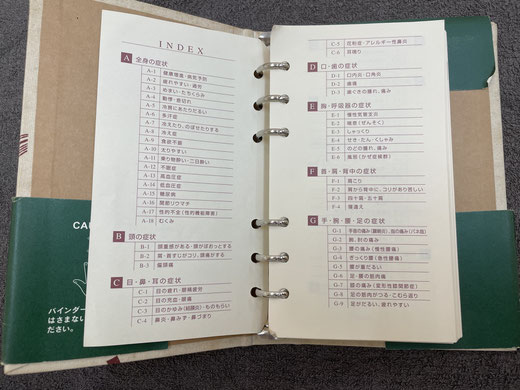 INDEX
A 全身の症状
A-1 健康増進・病気予防
A-2 疲れやすい・過労
A-3 めまい・たちくらみ
A-4 動悸・息切れ
A-5 冷房にあたりだるい
A-6 多汗症
A-7 冷えたり、のぼせたりする
A-8 冷え症
A-9 食欲不振
A-10 太りやすい
A-11 乗り物酔い・二日酔い
A-12 不眠症
A-13 高血圧症
A-14 低血圧症
A-15 糖尿病
A-16 関節リウマチ
A-17 性的不全(性的機能障害)
A-18 むくみ
B 頭の症状
B-1 頭重感がある・頭がぼおっとする
B-2 肩・首すじがコリ、頭痛がする
B-3 偏頭痛
C 目・鼻・耳の症状
C-1 目の疲れ・眼精疲労
C-2 目の充血・眼痛
C-3 目のかゆみ(結膜炎)・ものもらい
C-4 鼻炎・鼻みず・鼻づまり
C-5 花粉症・アレルギー性鼻炎
C-6 耳鳴り
D 口・歯の症状
D-1 口内炎・口角炎
D-2 歯痛
D-3 歯ぐきの腫れ、痛み
E 胸・呼吸器の症状
E-1 慢性気管支炎
E-2 喘息(ぜんそく)
E-3 しゃっくり
E-4 せき・たん・くしゃみ
E-5 のどの腫れ、痛み
E-6 風邪(かぜ症候群)
F 首・肩・背中の症状
F-1 肩こり
F-2 肩から背中に、コリがあり苦しい
F-3 四十肩・五十肩
F-4 寝違え
G 手・腕・腰・足の症状
G-1 手首の痛み(腱鞘炎)、指の痛み(バネ指)
G-2 腕、肘の痛み
G-3 腰の痛み(慢性腰痛)
G-4 ぎっくり腰(急性腰痛)
G-5 腰が重だるい
G-6 足・腰の筋肉痛
G-7 膝の痛み(変形性膝関節症)
G-8 足の筋肉がつる・こむら返り
G-9 足がだるい、疲れやすい
バインダー
はさまない
ださい。